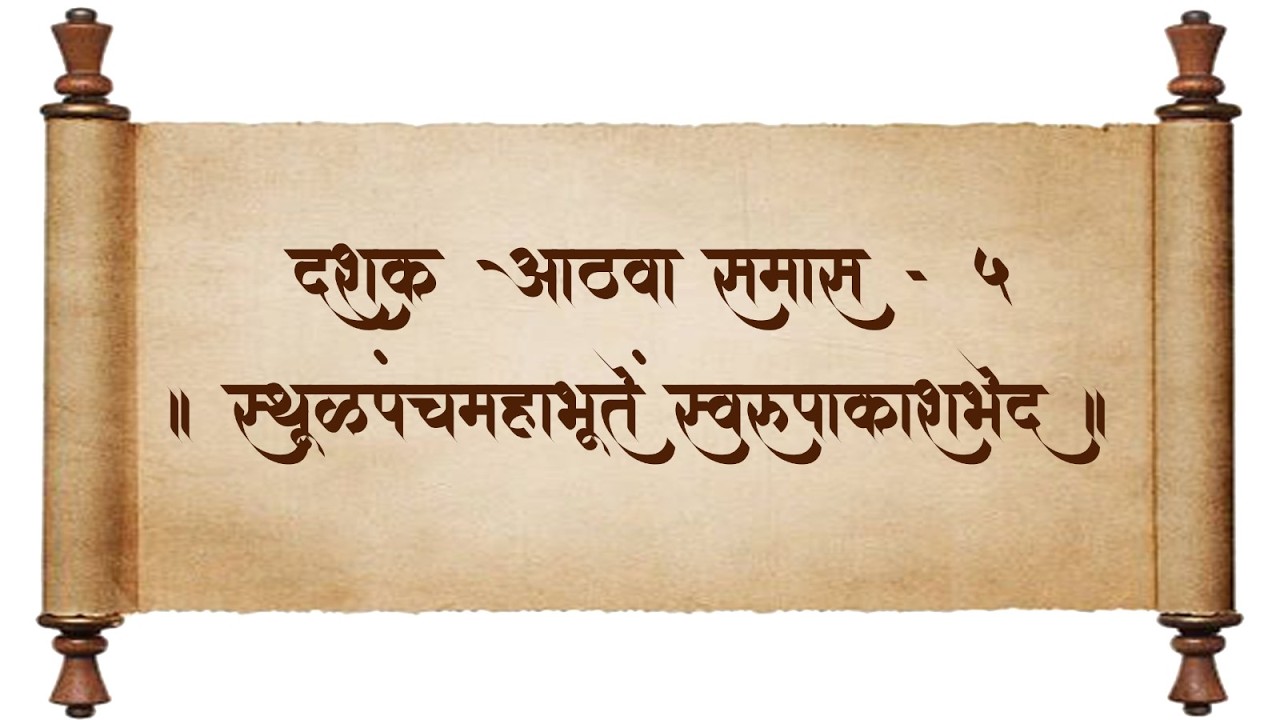 दशक आठवा समास - ५
॥ स्थूळपंचमहाभूतें स्वरुपाकाशभेद ॥